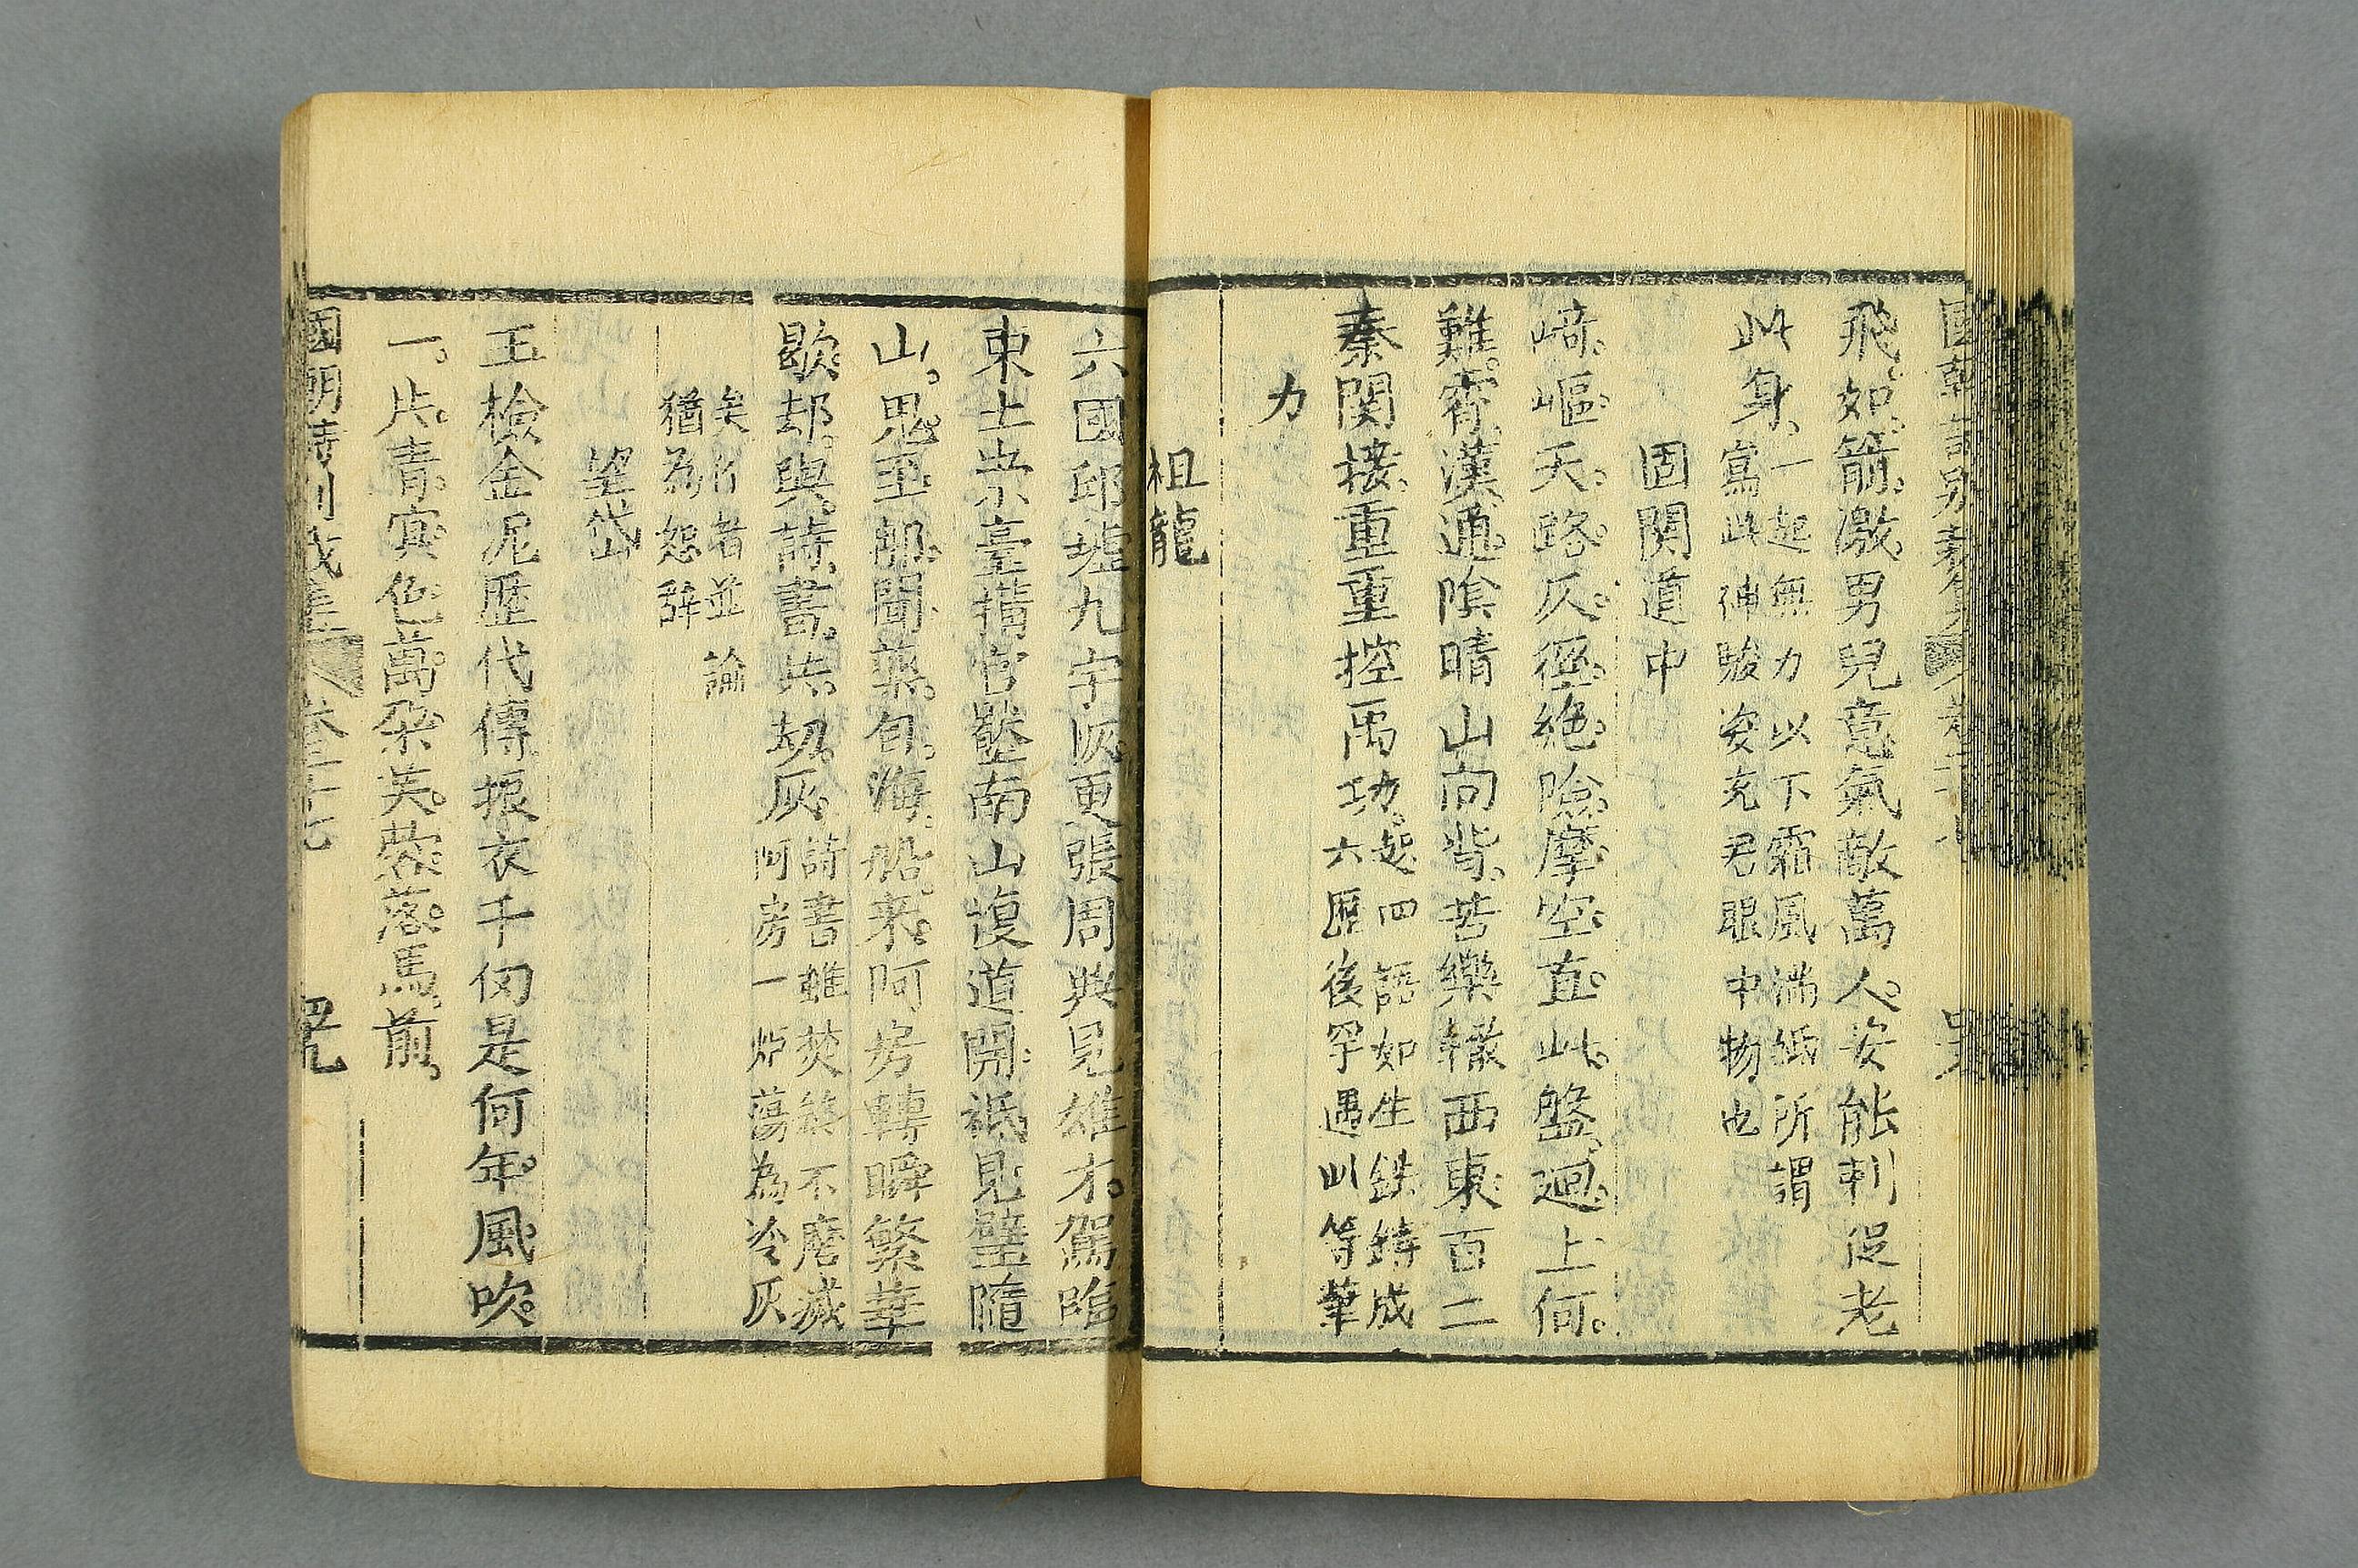 飛如箭激男兒意氣敵萬人安能刺促老
此身一起無力以下霜風滿紙所謂
寫此神駿姿充君眼中物也
固関道中
崎嶇天路仄徑絶險摩空直此盤迴上何
難霄漢通陰晴山向背苦樂轍西東百二
秦関接重重控禹功起四語如生鉄鑄成
六匝後罕遇此等筆
力
祖龍
六國邱墟九宇恢更張周典見雄才駕臨
東土崇臺搆宮鑿南山復道開祇見璧隨
山鬼至那聞藥自海船来阿房轉瞬繁華
歇却與詩書共刼灰詩書雖焚終不磨滅
阿房一炉蕩為冷灰
矣 者並論
猶為恕辞
望岱
玉檢金泥歷代傳振衣千仞是何年風吹
一片青冥色萬朶芙蓉落馬前
國朝詩別裁集 卷二十七 四九